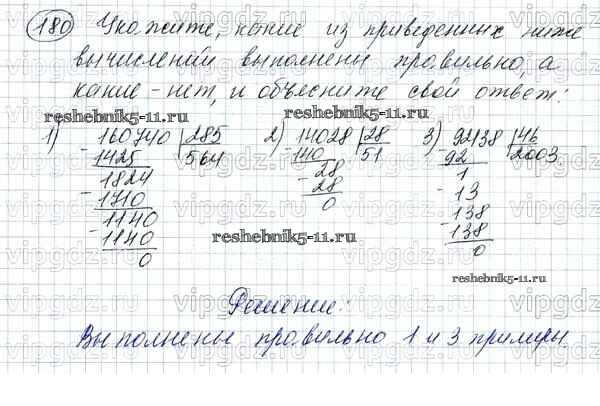 180 Укажите, какие из приведенных ниже
вычислений выполнены правильно, а
какие - нет, и объясните свой ответ:
reshebnik5-11.ru
reshebnik5-11.ru
1) 160740 | 285 2) 14028 | 28 3) 92138 | 46
- 1425 564 - 140 51 - 92 2003
1824 - 28 1
- 1710 28 - 13
1140 0 - 138
- 1140 - 138
0 0
reshebnik5-11.ru
reshebnik5-11.ru
Решение:
Выполнены правильно 1 и 3 примеры.
vipgdz.com